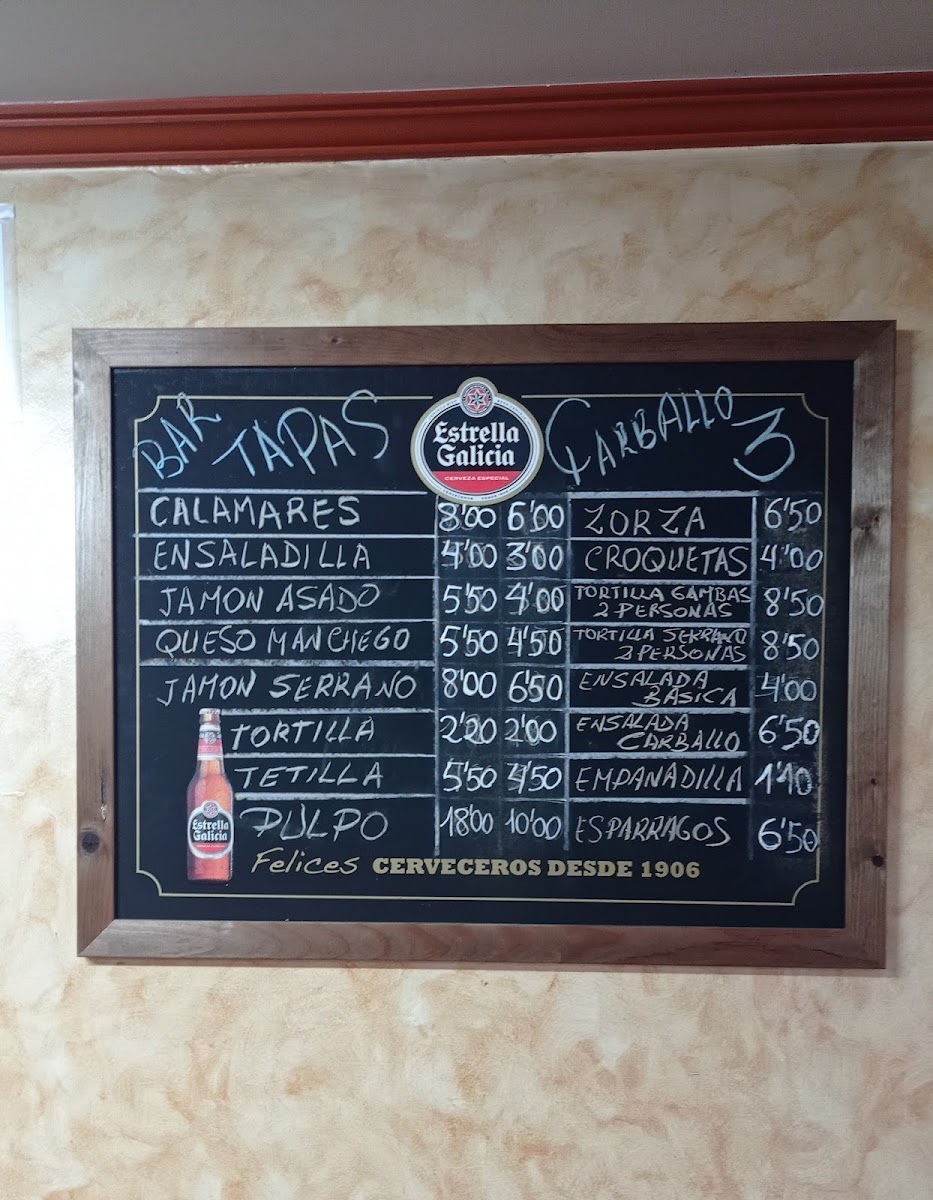 BAR TAPAS CARBALLO 3
Estrella
Galicia
CERVEZA ESPECIAL
CALAMARES 8'00 6'00
ENSALADILLA 4'00 3'00
JAMON ASADO 5'50 4'00
QUESO MANCHEGO 5'50 4'50
JAMON SERRANO 8'00 6'50
TORTILLA 2'20 2'00
TETILLA 5'50 4'50
PULPO 18'00 10'00
ZORZA 6'50
CROQUETAS 4'00
TORTILLA GAMBAS
2 PERSONAS 8'50
TORTILLA SERRANO
2 PERSONAS 8'50
ENSALADA
BASICA 4'00
ENSALADA
CARBALLO 6'50
EMPANADILLA 1'10
ESPARRAGOS 6'50
Estrella
Galicia
Felices CERVECEROS DESDE 1906